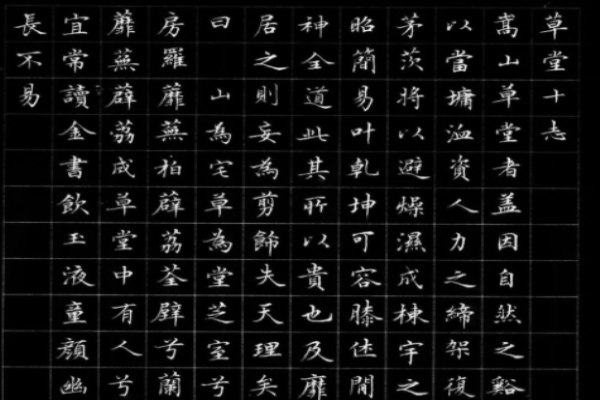 草堂十志
嵩山草堂者盖因自然之谿
以當墉洫資人力之締架復
茅茨將以避燥濕成棟宇之
昭簡易叶乾坤可容膝休閒
神全道此其所以貴也及靡
居之則妄為剪飾失天理矣
曰 山為宅草為堂芝室兮
房羅蘼蕪拍薜荔荃壁兮蘭
蘼蕪薜荔成草堂中有人兮
宜常讀金書飲玉液童顏幽
長不易